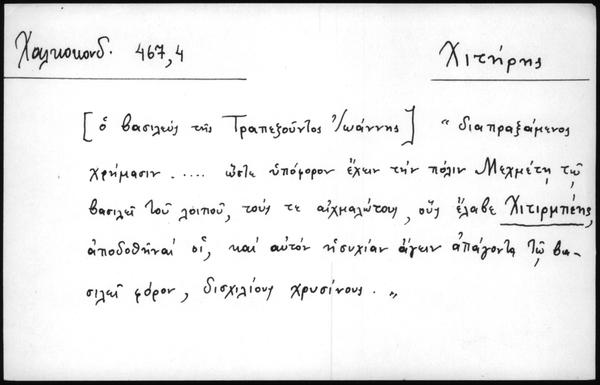 Χαλκοκονδ. 467,4
Χιτήρης
[ὁ βασιλεύς τῆς Τραπεζοῦντος Ἰωάννης] „ διαπραξάμενος
χρήμασιν ..... ὥστε ὑπόφορον ἔχειν τήν πόλιν Μεχμέτῃ τῷ
βασιλεῖ τοῦ λοιποῦ, τούς τε αἰχμαλώτους, οὓς ἔλαβε Χιτιρμπέης,
ἀποδοθῆναί οἷ, καί αὐτόν ἡσυχίαν ἄγειν ἀπάγοντα τῷ βα-
σιλεῖ φόρον, δισχιλίους χρυσίνους. „